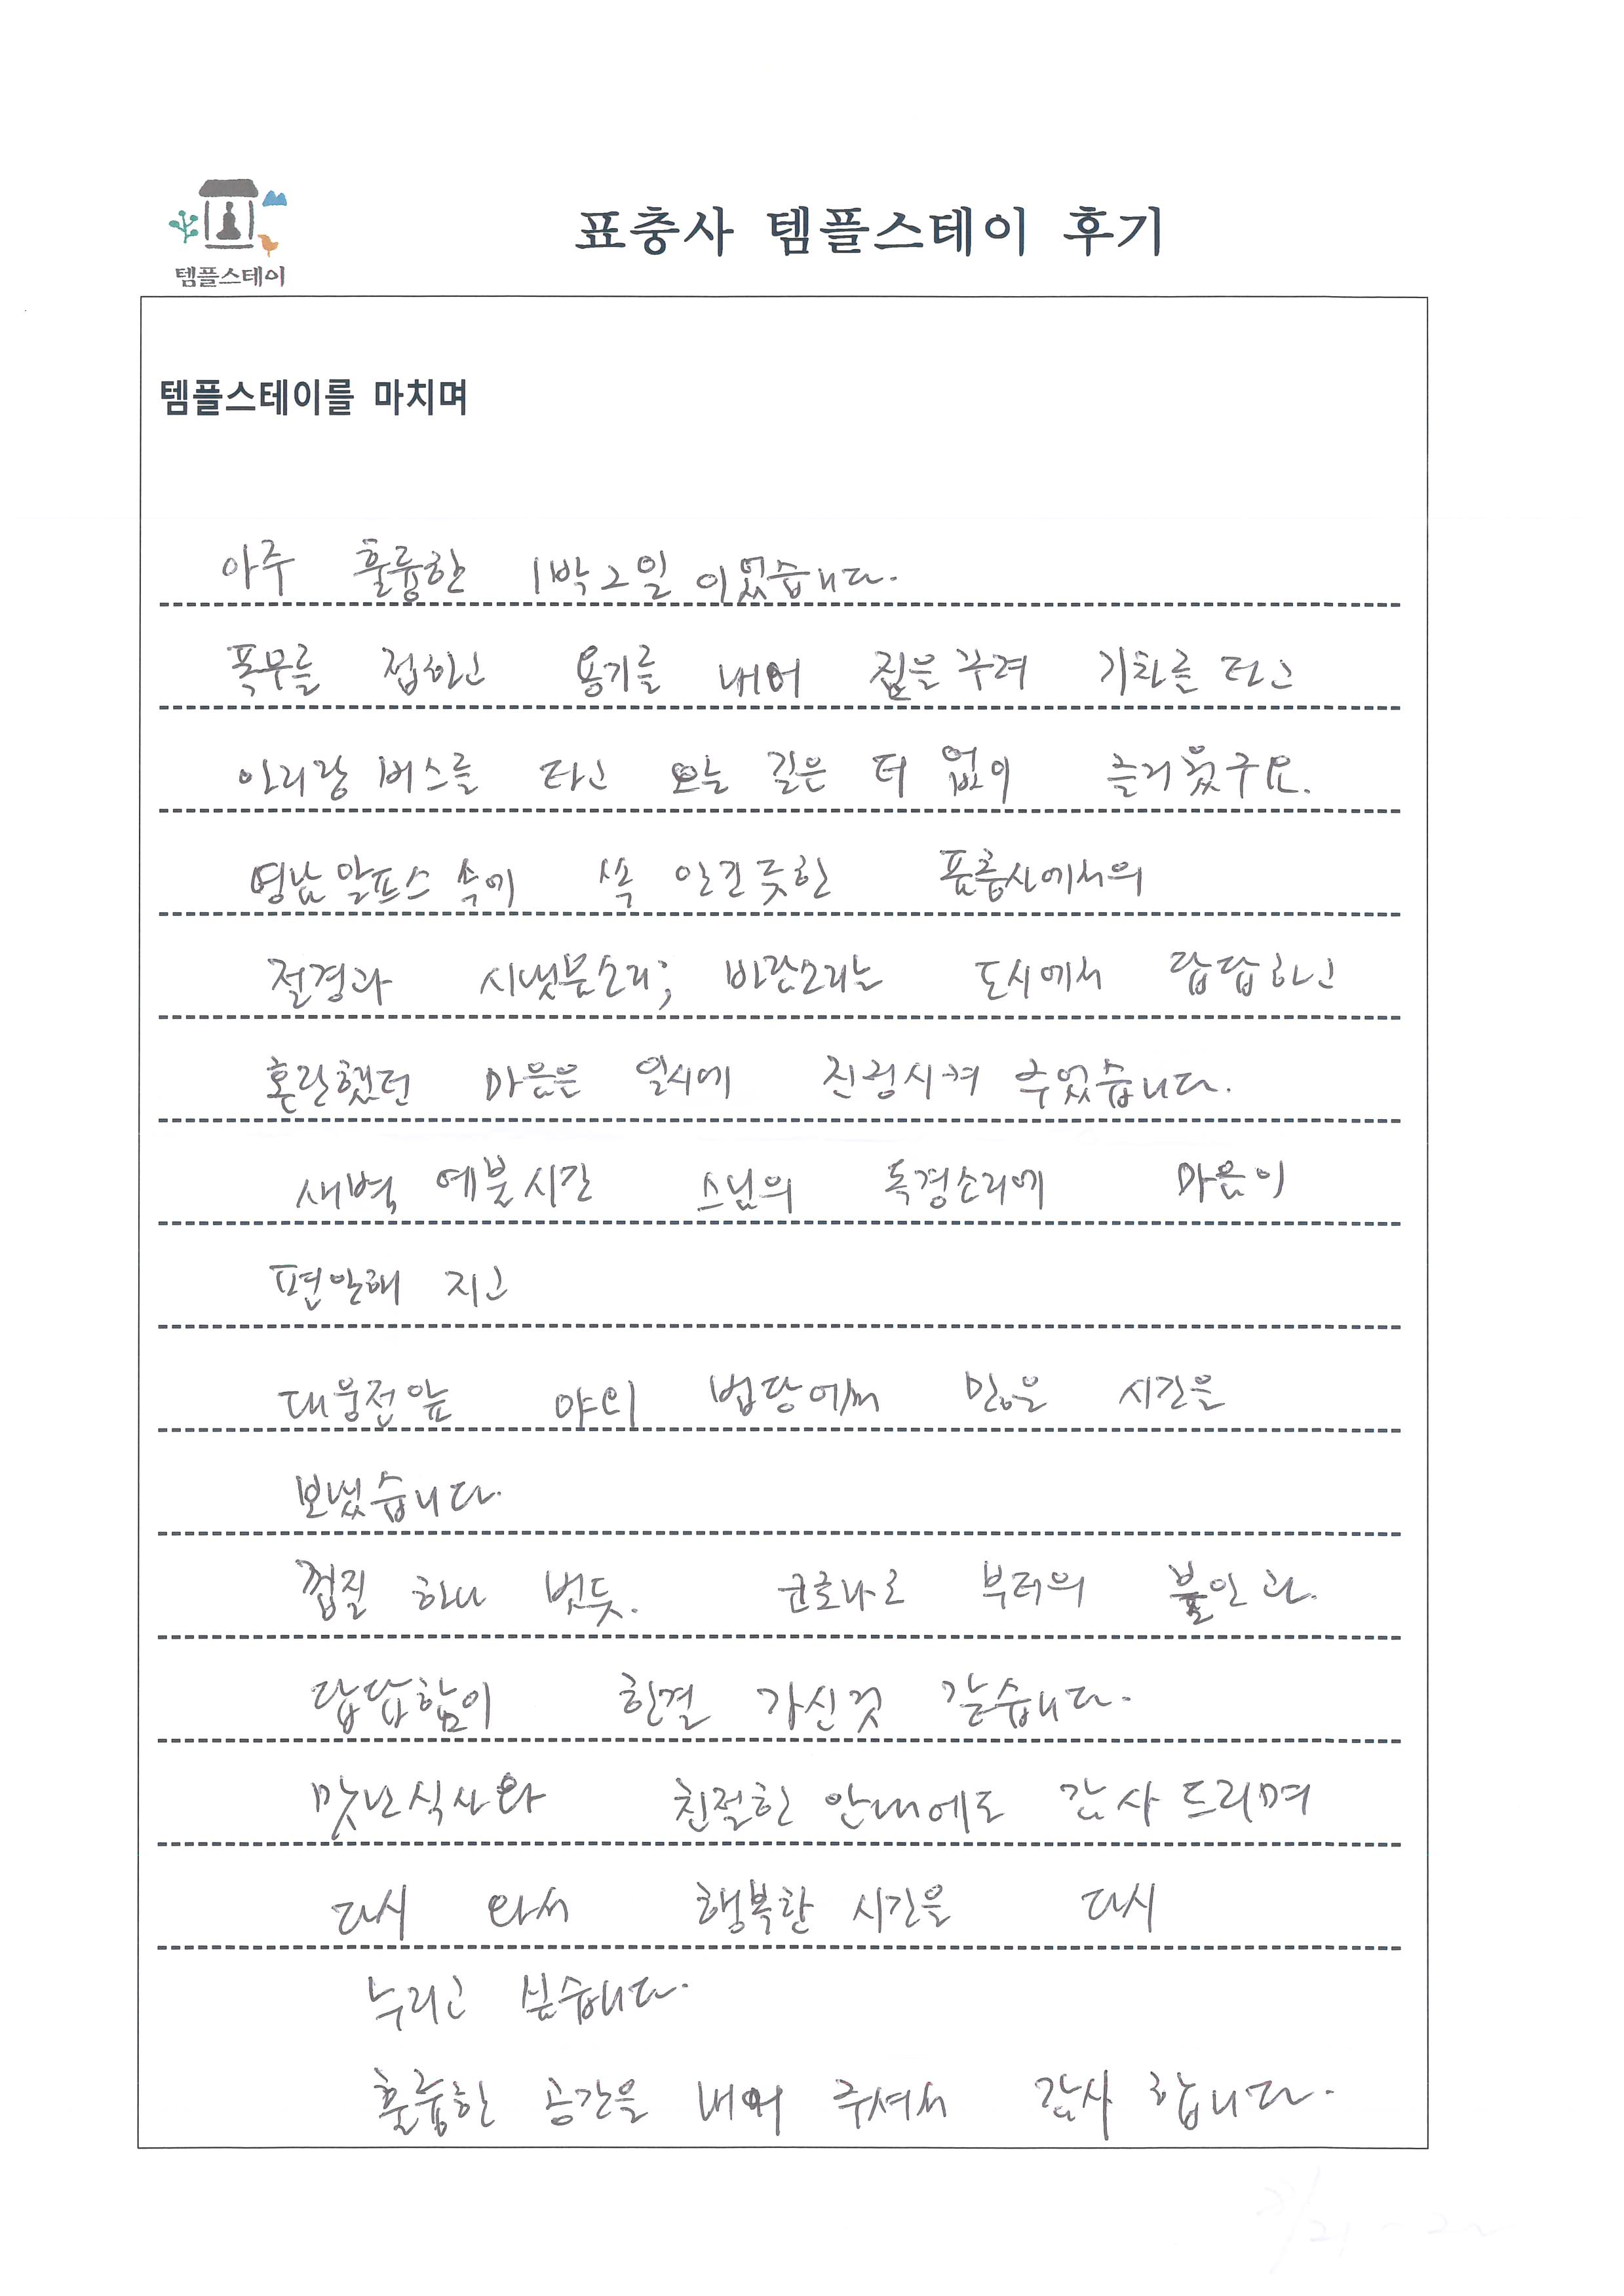 템플스테이
표충사 템플스테이 후기
템플스테이를 마치며
아주 훌륭한 1박2일 이었습니다.
폭무를 접하고 용기를 내어 짐을 꾸려 기차를 타고
아리랑 버스를 타고 오는 길은 더 없이 즐거웠구요.
영남알프스 속에 쏙 안긴듯한 표충사에서의
절경과 시냇물소리; 바람소리는 도시에서 답답하고
혼란했던 마음은 일시에 진정시켜 주었습니다.
새벽 예불시간 스님의 독경소리에 마음이
편안해 지고
대웅전앞 야외 법당에서 맑은 시간을
보냈습니다.
껍질 하나 벗듯. 코로나로 부터의 불안과.
답답함이 한결 가신것 같습니다.
맛난식사와 친절한 안내에도 감사드리며
다시 와서 행복한 시간을 다시
누리고 싶습니다.
훌륭한 공간을 내어 주셔서 감사 합니다.